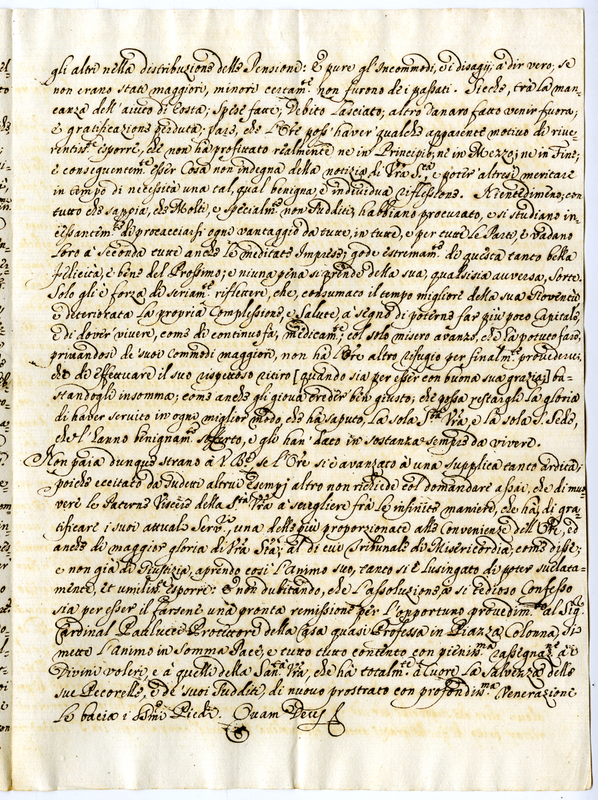 gli altri nella distribuzione delle Pensioni: è pure gl'Incommodi, e i disagij, à dir vero, se
non erano stati maggiori, minori certam.te non furono de i passati. Siche, trà la man-
canza dell'aiuto di Costa; Spese fatte; Debito Lasciato; altro danaro fatto venir fuora;
è gratificazione perduta; pare, che l'Ore possi haver qualche apparente motivo di rive-
rentim.te esporre, che non hà profivato realmente ne in Principio, ne in Mezzo, ne in Fine;
è consequentem.te esser Cosa non indegna della notizia di V'ra S.tà, e poter altresì meritare
in tempo di necessità una tal, qual benigna, e individua riflessione. Nientedimeno, con
tutto che sappia, che Molti, e specialm.te non Sudditi, habbiano procurato, e si studiano in-
cessantem.te di procacciarsi ogni vantaggio da tutte, in tutte, e per tutte le Parti, è vadano
loro à seconda tutte anche le meditate Imprese; gode estremam.te di questa tanto bella
felicità, è bene del Prossimo; e niuna pena si prende della sua, qualsisia avversa, sorte.
Solo gli è forza di seriam.te riflettere, che, consumato il tempo migliore della sua Gioventù
è deteriorata la propria Complessione, e Salute, à segno di poterne far più poco Capitale,
E di dover vivere, come di continuo fà, medicam.te; col solo misero avanzo, che hà potuto fare,
privandosi de suoi Commodi maggiori, non hà l'Ore altro refugio per finalm.te provedervi;
che di effettuare il suo rispettoso ritiro [quando sia per esser con buona sua grazia] ba-
standogli insomma; come anche gli giova creder ben giusto; che possa restargli la gloria
di haber servito in ogni miglior modo, che hà saputo, la sola S.tà V'ra, e la sola S. Sede,
che l'hanno benignam.te sofferto, e gli han' dato in sostanza sempre da vivere.
Non paia dunque strano à V. B.ne, se l'Ore si è avanzato à una supplica tanto ardita;
poiche eccitato da sudetti altrui esempj altro non richiede col domandare assai, che di muo-
vere le Paterne Viscere della S.tà V'ra à scegliere frà le infinite maniere, che hà, di gra-
tificare i suoi attuali Serv.ri, una delle più proporzionate alle Convenienze dell'Ore, ed
anche di maggior gloria di V'ra S.tà; al di cui Tribunale di Misericordia; come disse;
e non già di Giustizia, aprendo così l'animo suo; tanto si è lusingato di poter succinta-
mente, et umilm.te esporre: E non dubitando, che l'assoluzione à sè tedioso Confesso
sia per esser il farsene una pronta remissione per l'opportuno provedim.to al Sig.
Cardinal Paulucci Protettore della Casa quasi Professa in Piazza Colonna; Ri-
mette l'Animo in Somma Pace; e tutto tutto contento con pienis.ma rassegnaz.ne à i
Divini voleri, e à quelli della San.tà V'ra, che hà totalm.te à Cuore la Salvezza delle
sue Pecorelle, è de suoi Sudditi, di nuovo prostrato con profondis.ma Venerazione
Le bacia i SS.mi Piedi. Quam Deus